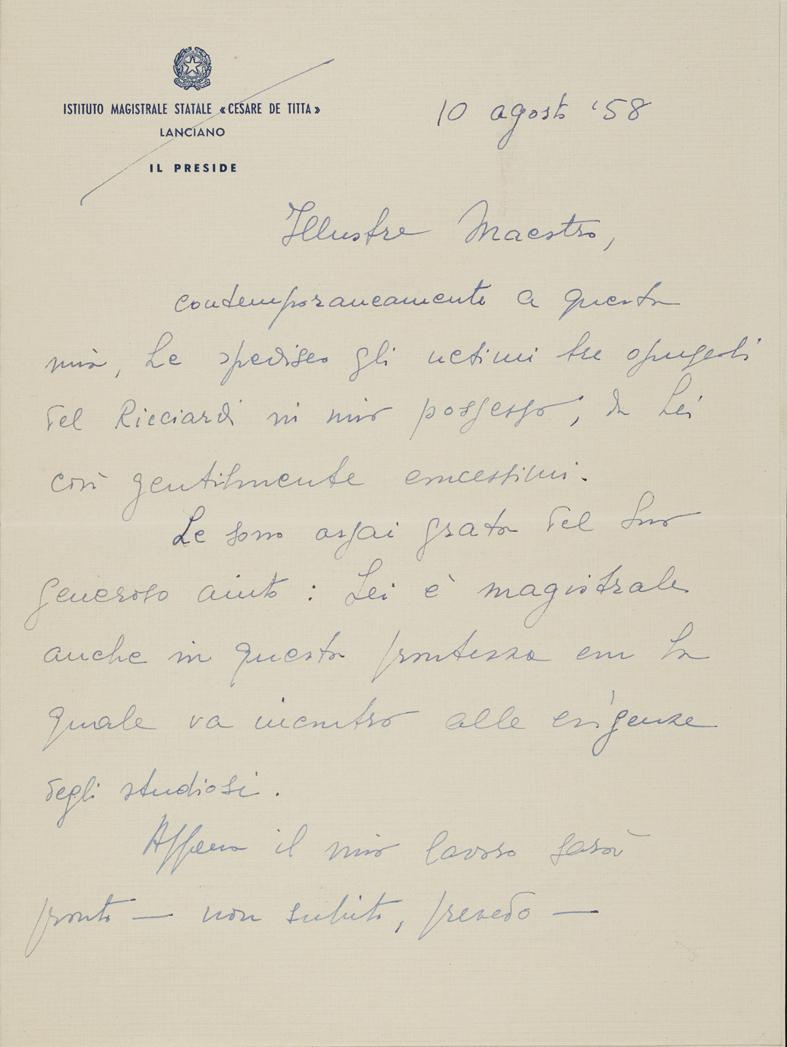 ISTITUTO MAGISTRALE STATALE «CESARE DE TITTA»
LANCIANO
IL PRESIDE
10 agosto '58
Illustre Maestro,
contemporaneamente a questa
mia, Le spedisco gli ultimi tre opuscoli
del Ricciardi in mio possesso, da Lei
così gentilmente concessimi.
Le sono assai grato del Suo
generoso aiuto: Lei è magistrale
anche in questa prontezza con la
quale va incontro alle esigenze
degli studiosi.
Appena il mio lavoro sarà
pronto — non subito, prevedo —